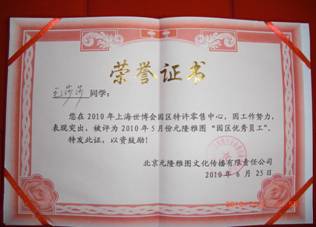 荣誉证书
王莎莎同学：
您在2010年上海世博会园区特许零售中心，因工作努力，
表现突出，被评为2010年5月份元隆雅图“园区优秀员工”，
特发此证，以资鼓励！
北京元隆雅图文化传播有限责任公司
2010年6月25日